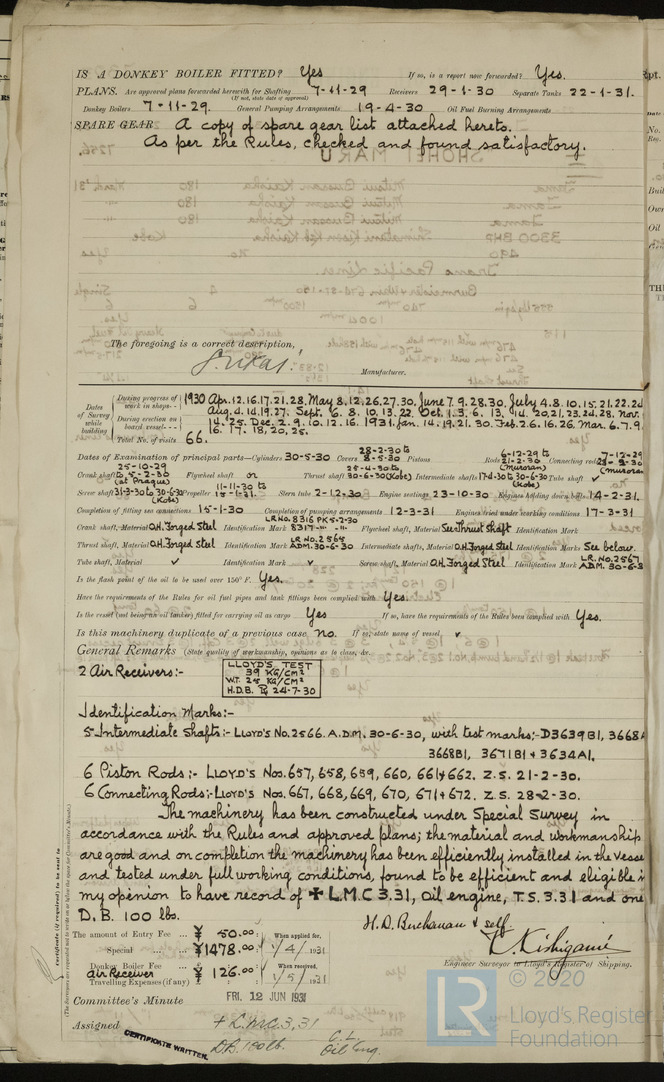 IS A DONKEY BOILER FITTED? Yes If so, is a report now forwarded? Yes.
PLANS. Are approved plans forwarded herewith for Shafting 7-11-29 Receivers 29-1-30 Separate Tanks 22-1-31.
(If not, state date of approval)
Donkey Boilers 7-11-29. General Pumping Arrangements 19-4-30 Oil Fuel Burning Arrangements
SPARE GEAR. A copy of spare gear list attached hereto.
As per the Rules, checked and found satisfactory.
The foregoing is a correct description,
Manufacturer.
Dates of Survey while building
During progress of work in shops - -
During erection on board vessel - - -
Total No. of visits 66.
1930 Apr. 12.16.17.21.28, May 8.12.26.27.30. June 7.9.28.30. July 4.8.10.15.21.22.24
Aug. 4.14.19.27. Sept. 6.8.10.13.22. Oct. 1.3.6.13. 14.20.21.23.24.28. Nov.
14.25. Dec. 2.9.10.12.16. 1931. Jan. 14.19.21.30. Feb. 2.6.16.26. Mar. 6.7.9.
16.17.18.20.25.
Dates of Examination of principal parts—Cylinders 30-5-30 Covers 28-2-30 to 8-5-30 Pistons Rods 6-12-29 to 21-2-30 (Muroran) Connecting rods 7-12-29
Crank shaft 25-10-29 to 5-2-30 (at Prague) Flywheel shaft or Thrust shaft 25-4-30 to 30-6-30 (Kobe) Intermediate shafts 17-4-30 to 30-6-30 (Kobe) Tube shaft ✓
Screw shaft 31-3-30 to 30-6-30 (Kobe) Propeller 11-11-30 to 15-1-31. Stern tube 2-12-30. Engine seatings 23-10-30 Engines holding down bolts 14-2-31.
Completion of fitting sea connections 15-1-30 Completion of pumping arrangements 12-3-31 Engines tried under working conditions 17-3-31
Crank shaft, Material O.H. Forged Steel Identification Mark LR No. 8316 PK 5-2-30 8317 " " Flywheel shaft, Material See Thrust Shaft Identification Mark
Thrust shaft, Material O.H. Forged Steel Identification Mark LR. No 2565 ADM. 30-6-30 Intermediate shafts, Material O.H. Forged Steel Identification Marks See below
Tube shaft, Material ✓ Identification Mark ✓ Screw shaft, Material O.H. Forged Steel Identification Mark LR. No. 2567 ADM. 30-6-3
Is the flash point of the oil to be used over 150° F. Yes.
Have the requirements of the Rules for oil fuel pipes and tank fittings been complied with Yes.
Is the vessel (not being an oil tanker) fitted for carrying oil as cargo Yes If so, have the requirements of the Rules been complied with Yes.
Is this machinery duplicate of a previous case No. If so, state name of vessel ✓
General Remarks (State quality of workmanship, opinions as to class, &c.
2 Air Receivers:-
LLOYD'S TEST
39 KG/CM²
W.P. 25 KG/CM²
H.D.B. 24-7-30
Identification Marks:-
5 Intermediate Shafts:- Lloyd's No. 2566. A.D.M. 30-6-30, with test marks:- D3639B1, 3668A
3668B1, 3671B1 & 3634A1.
6 Piston Rods:- Lloyd's Nos. 657, 658, 659, 660, 661 & 662. Z.S. 21-2-30.
6 Connecting Rods:- Lloyd's Nos. 667, 668, 669, 670, 671 & 672. Z.S. 28-2-30.
The machinery has been constructed under Special Survey in
accordance with the Rules and approved plans; the material and workmanship
are good and on completion the machinery has been efficiently installed in the Vesse
and tested under full working conditions, found to be efficient and eligible in
my opinion to have record of ✠ L.M.C 3.31, Oil engine, T.S. 3.31 and one
D.B. 100 lbs.
H. D. Buchanan & self
Certificate (if required) to be sent to
(The Surveyors are requested not to write on or below the space for Committee's Minute.)
The amount of Entry Fee ... ¥ 50.00 : When applied for,
Special ... ... ¥ 1478.00 : 1/4/1931
Donkey Boiler Fee ... Air Receiver ¥ 126.00 : When received,
Travelling Expenses (if any) 1/5/1931
Engineer Surveyor to Lloyd's Register of Shipping.
Committee's Minute FRI. 12 JUN 1931
Assigned + L.M.C. 3,31
CERTIFICATE WRITTEN. D.B. 100 lb. C.L. Oil Eng.
LR
© 2020
Lloyd's Register
Foundation